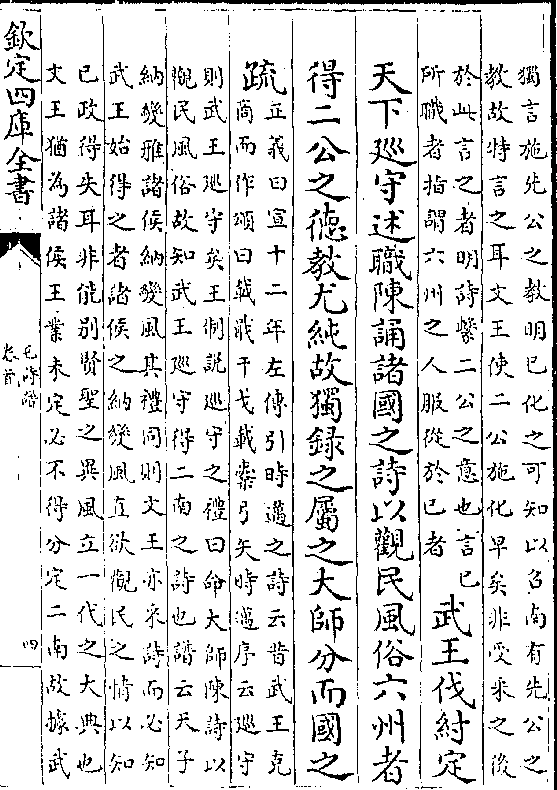 獨言施先公之教明已化之可知以召南有先公之
教故特言之耳文王使二公施化早矣非受采之後
於此言之者明詩繫二公之意也言已
所職者指謂六州之人服從於已者
武王伐紂定
天下巡守述職陳誦諸國之詩以觀民風俗六州者
得二公之德教尤純故獨録之屬之大師分而國之
疏
正義曰宣十二年左傳引時邁之詩云昔武王克
商而作頌曰載戢干戈載櫜弓矢時邁序云巡守
則武王巡守矣王制説巡守之禮曰命大師陳詩以
觀民風俗故知武王巡守得二南之詩也譜云天子
納變雅諸侯納變風其禮同則文王亦采詩而必知
武王始得之者諸侯之納變風直欲觀民之情以知
已政得失耳非能別賢聖之異風立一代之大典也
文王猶為諸侯王業未定必不得分定二南故據武
欽定四庫全書
毛詩譜
卷首
四